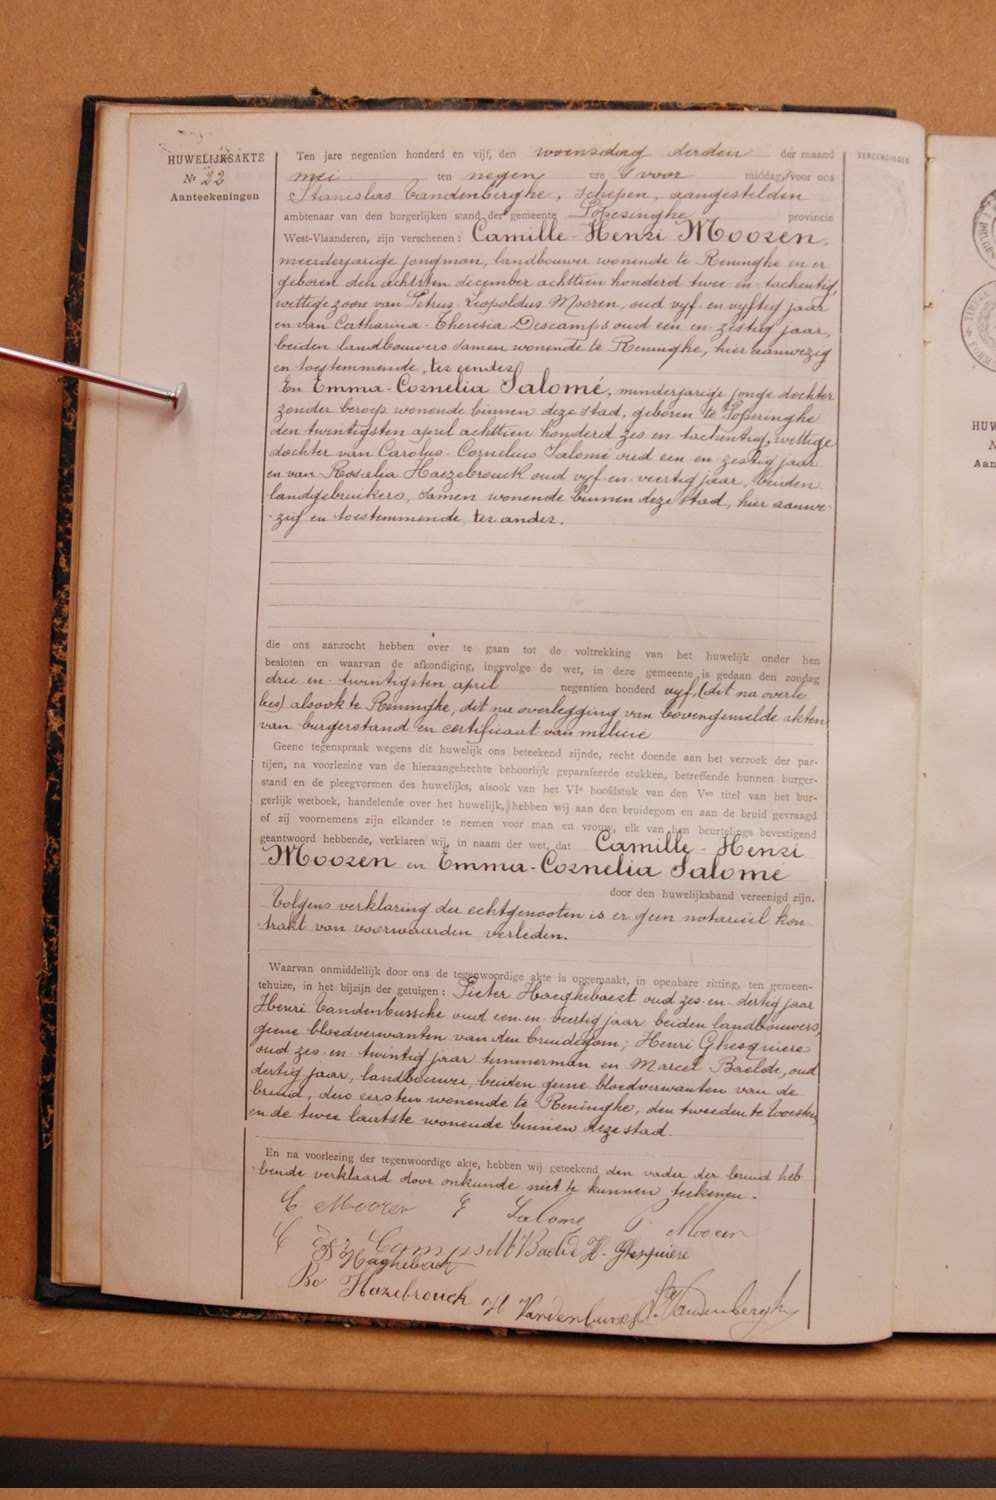 HUWELIJKSAKTE
Nr 22
Aanteekeningen
Ten jare negentien honderd en vijf, den woensdag derden der maand
mei ten negen ure 's voor middags voor ons
Stanislas Vandenberghe, schepen, aangestelden
ambtenaar van den burgerlijken stand der gemeente Poperinghe provincie
West-Vlaanderen, zijn verschenen: Camille-Henri Mooren,
meerderjarige jongman, landbouwer wonende te Reninghe en er
geboren den achtsten december achttien honderd twee en tachentig,
wettige zoon van Petrus Leopoldus Mooren, oud vyf en vyftig jaar
en van Catharina-Theresia Descamps oud een en zestig jaar,
beiden landbouwers samen wonende te Reninghe, hier aanwezig
en toestemmende, ter eender
En Emma-Cornelia Salomé, minderjarige jonge dochter
zonder beroep wonende binnen deze stad, geboren te Poperinghe
den twintigsten april achttien honderd zes en tachentig, wettige
dochter van Carolus-Cornelius Salomé oud een en zestig jaar
en van Rosalia Haezebrouck oud vyf en veertig jaar, beiden
landgebruikers, samen wonende binnen deze stad, hier aanwe-
zig en toestemmende, ter ander.
die ons aanzocht hebben over te gaan tot de voltrekking van het huwelijk onder hen
besloten en waarvan de afkondiging, ingevolge de wet, in deze gemeente is gedaan den zondag
drie en twintigsten april negentien honderd vyf, (dit na overle
bes) alsook te Reninghe, dit na overlegging van bovengemelde akten
van burgerstand en certificaat van milicie
Geene tegenspraak wegens dit huwelijk ons beteekend zijnde, recht doende aan het verzoek der par-
tijen, na voorlezing van de hieraangehechte behoorlijk geparafeerde stukken, betreffende hunnen burger-
stand en de pleegvormen des huwelijks, alsook van het VIe hoofdstuk van den Ven titel van het bur-
gerlijk wetboek, handelende over het huwelijk, hebben wij aan den bruidegom en aan de bruid gevraagd
of zij voornemens zijn elkander te nemen voor man en vrouw, elk van hen beurtelings bevestigend
geantwoord hebbende, verklaren wij, in naam der wet, dat Camille-Henri
Mooren en Emma-Cornelia Salomé
door den huwelijksband vereenigd zijn.
Volgens verklaring der echtgenooten is er geen notarieel kon
trakt van voorwaarden verleden.
Waarvan onmiddellijk door ons de tegenwoordige akte is opgemaakt, in openbare zitting, ten gemeen-
tehuize, in het bijzijn der getuigen: Pieter Haegheboert oud zes en dertig jaar
Henri Vandenbussche oud een en veertig jaar beiden landbouwers,
geene bloedverwanten van den bruidegom; Henri Ghesquiere
oud zes en twintig jaar timmerman en Marcel Baelde, oud
dertig jaar, landbouwer, beiden geene bloedverwanten van de
bruid, den eersten wonende te Reninghe, den tweeden te Woesten,
en de twee laatste wonende binnen deze stad.
En na voorlezing der tegenwoordige akte, hebben wij geteekend den vader der bruid heb
bende verklaard door onkunde niet te kunnen teekenen.
C Mooren E Salome P Mooren
C Descamps M Baelde H. Ghesquiere
Ro Hazebrouck H Vandenbussche S. Vandenberghe
VEREENIGINGEN